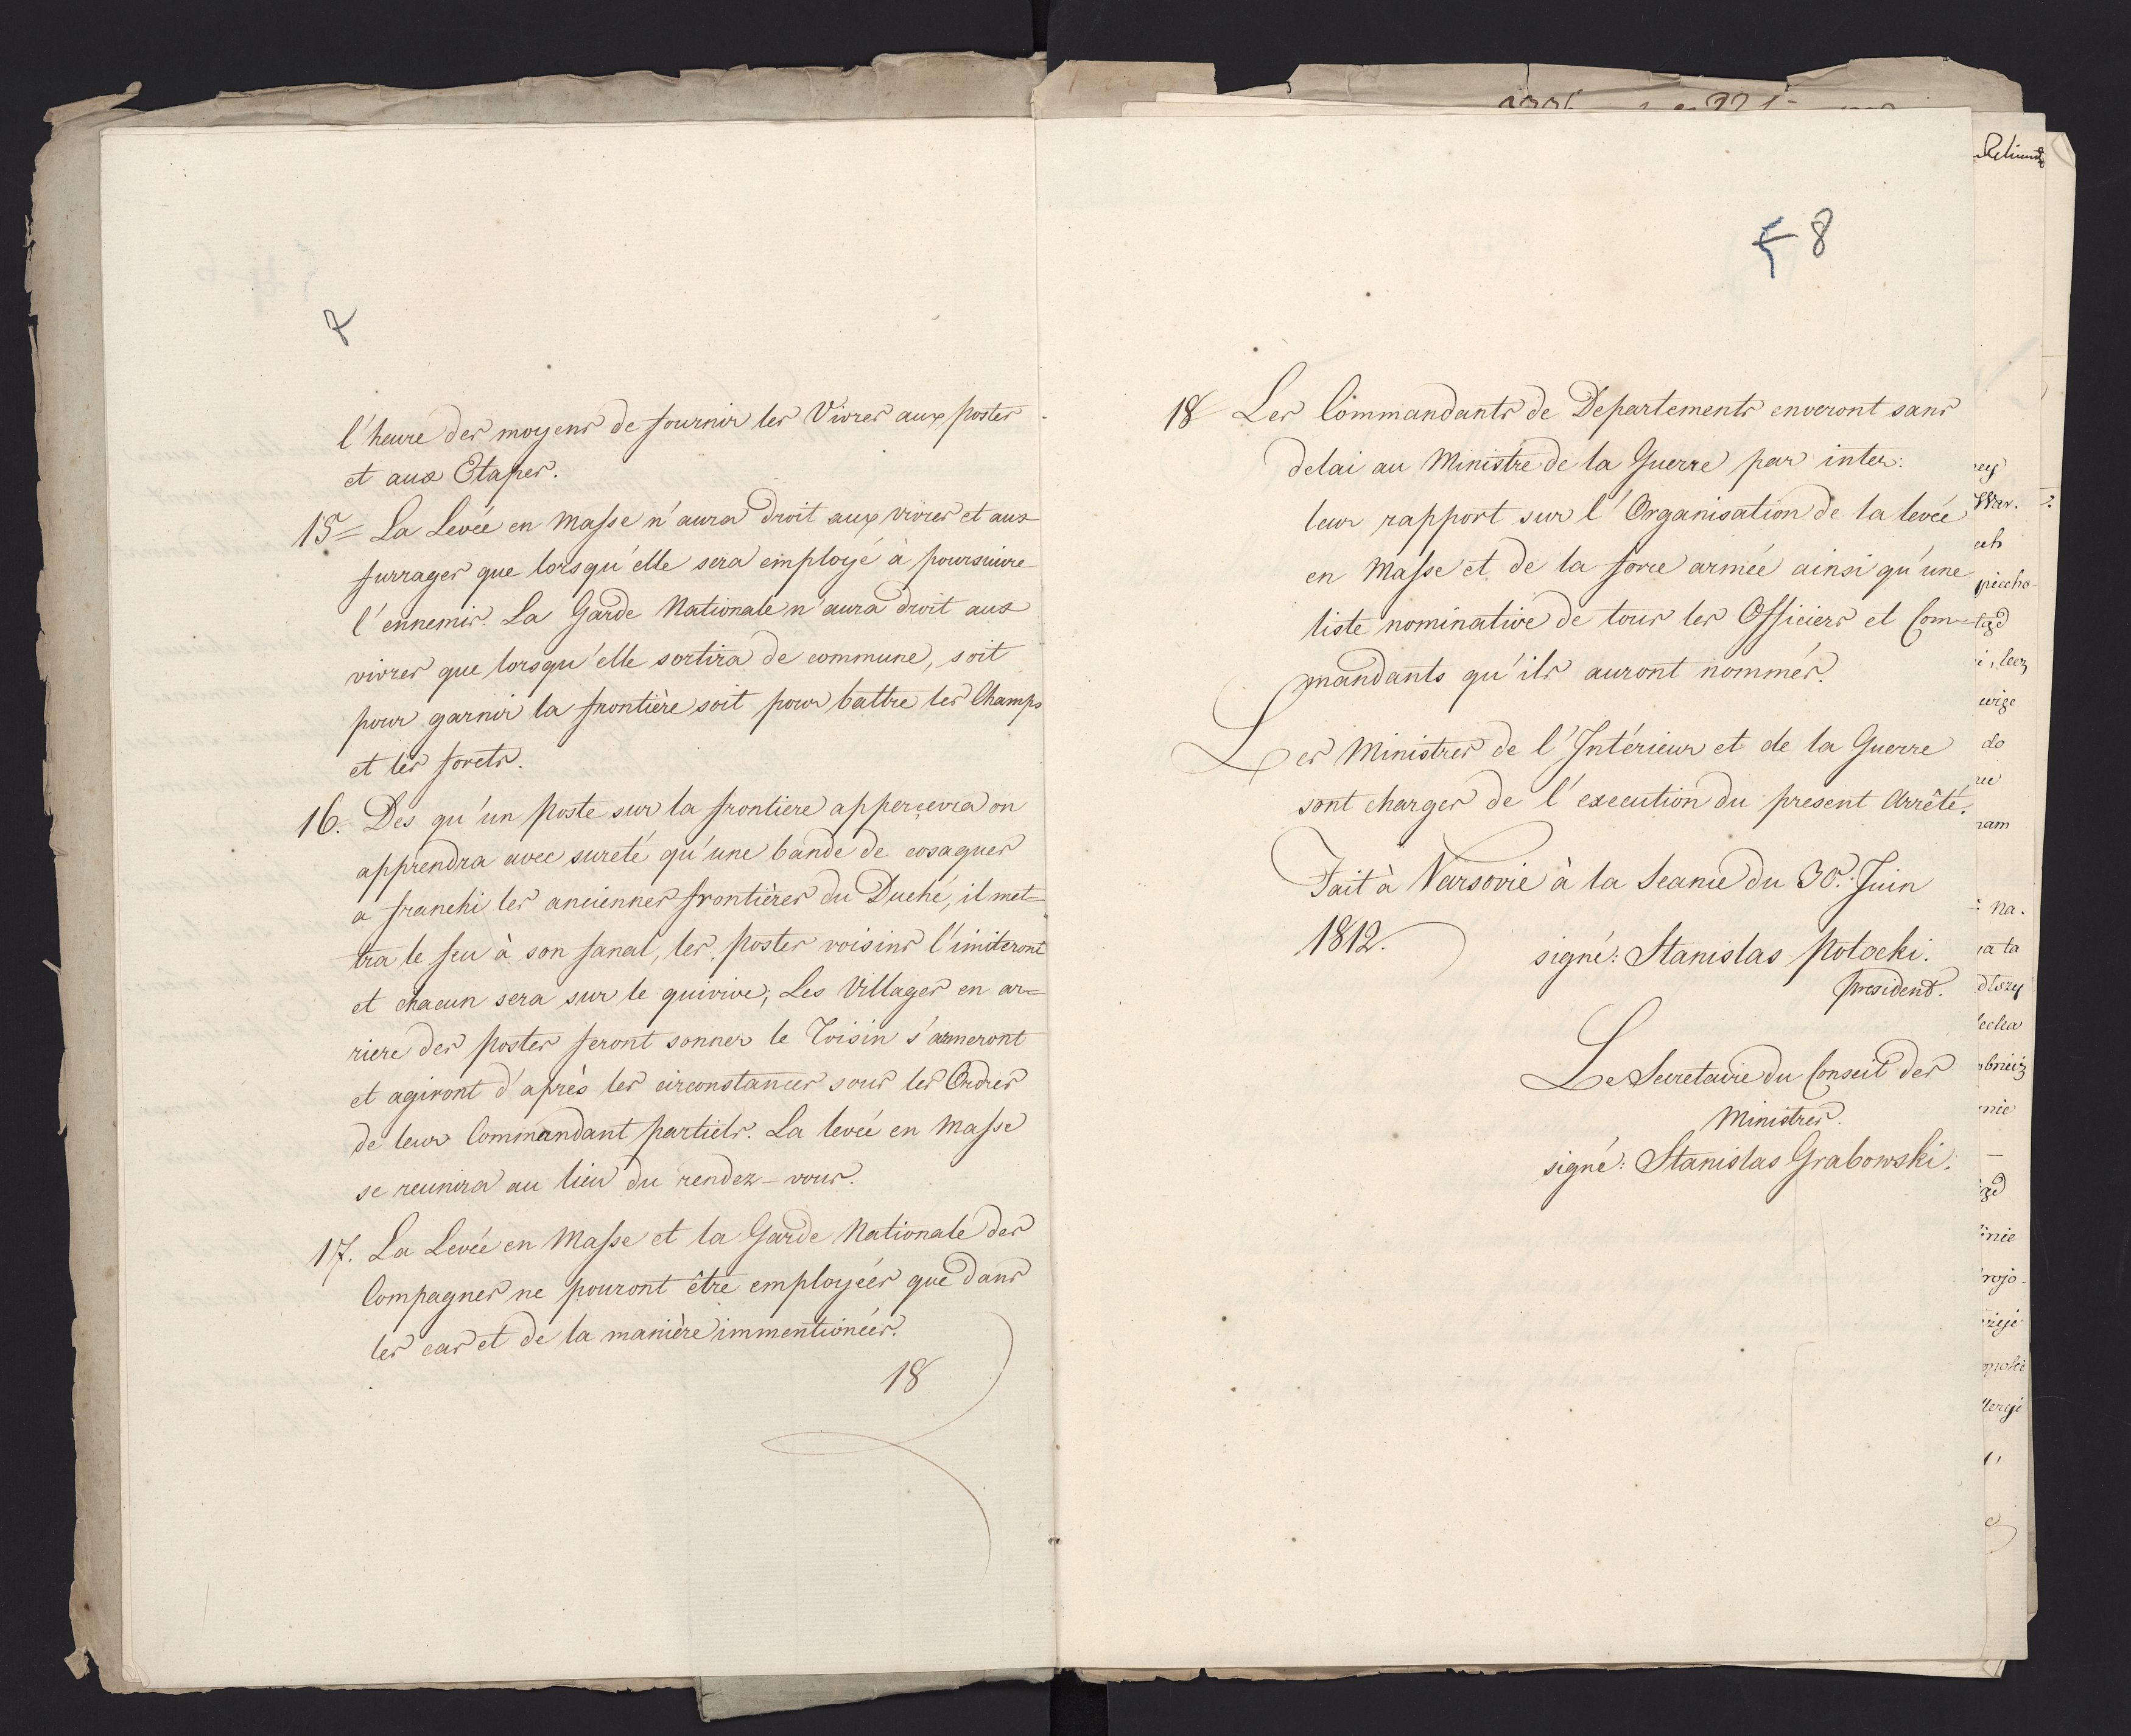 7
l'heure des moyens de fournir les Vivres aux postes
et aux Etapes.
15= La Levée en Masse n'aura droit aux vivres et aux
furrages que lorsqu'elle sera employé à poursuivre
l'ennemis. La Garde Nationale n'aura droit aux
vivres que lorsqu'elle sortira de commune, soit
pour garnir la frontière soit pour battre les Champs
et les forets.
16. Des qu'un Poste sur la frontiere apperçevra on
apprendra avec sureté qu'une bande de cosaques
a franchi les anciennes frontières du Duché, il met=
tra le feu à son fanal, les postes voisins l'imiteront
et chacun sera sur le quivive; Les Villages en ar=
riere des postes feront sonner le Toisin s'armeront
et agiront d'après les circonstances sous les Ordres
de leur Commandant partiels. La levée en Masse
se reunira au lieu du rendez-vous.
17. La Levée en Masse et la Garde Nationale des
Compagnes ne pouront être employées que dans
les cas et de la manière immentionées.
18
5 8
18 Les Commandants de Departements enveront sans
delai au Ministre de la Guerre par inter:
leur rapport sur l'Organisation de la levée
en Masse et de la force armée ainsi qu'une
liste nominative de tous les Officiers et Com=
mandants qu'ils auront nommés.
Les Ministres de l'Intérieur et de la Guerre
sont charges de l'execution du present Arrêté.
Fait à Varsovie à la Seance du 30.: Juin
1812.
signé: Stanislas Potocki.
president.
Le Secretaire du Conseil des
Ministres.
signé: Stanislas Grabowski.